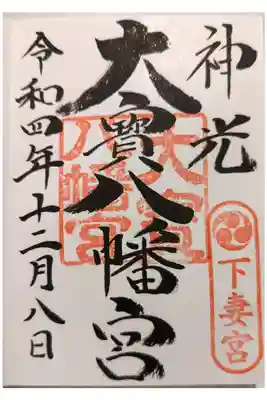 神光
大寳八幡宮
大宝八幡宮
下妻宮
令和四年十二月八日